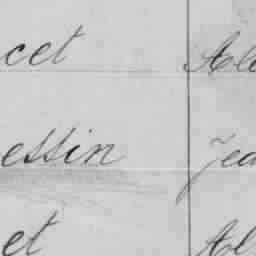 cet Alb
essin Jea
et Al